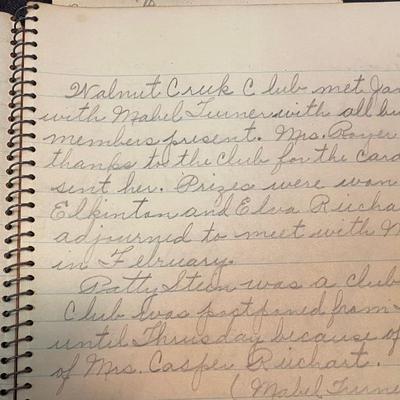 Walnut Creek Club met Jan
with Mabel Turner with all bu
members present. Mrs. Royer
thanks to the club for the car
sent her. Prizes were won
Elkinton and Elva Richa
adjourned to meet with M
in February.
Patty Stein was a club
Club was postponed from
until Thrusday because of
of Mrs. Casper Richart.
(Mabel Turne